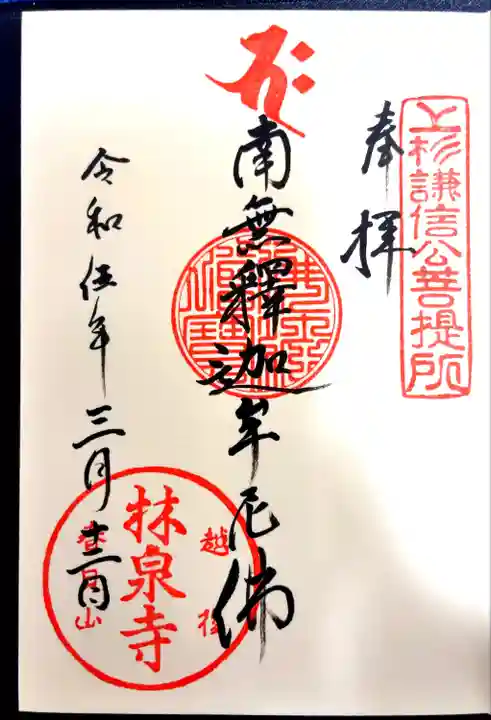 上杉謙信公菩提所
奉拝
南無釋迦牟尼佛
越後
林泉寺
春日山
令和伍年三月